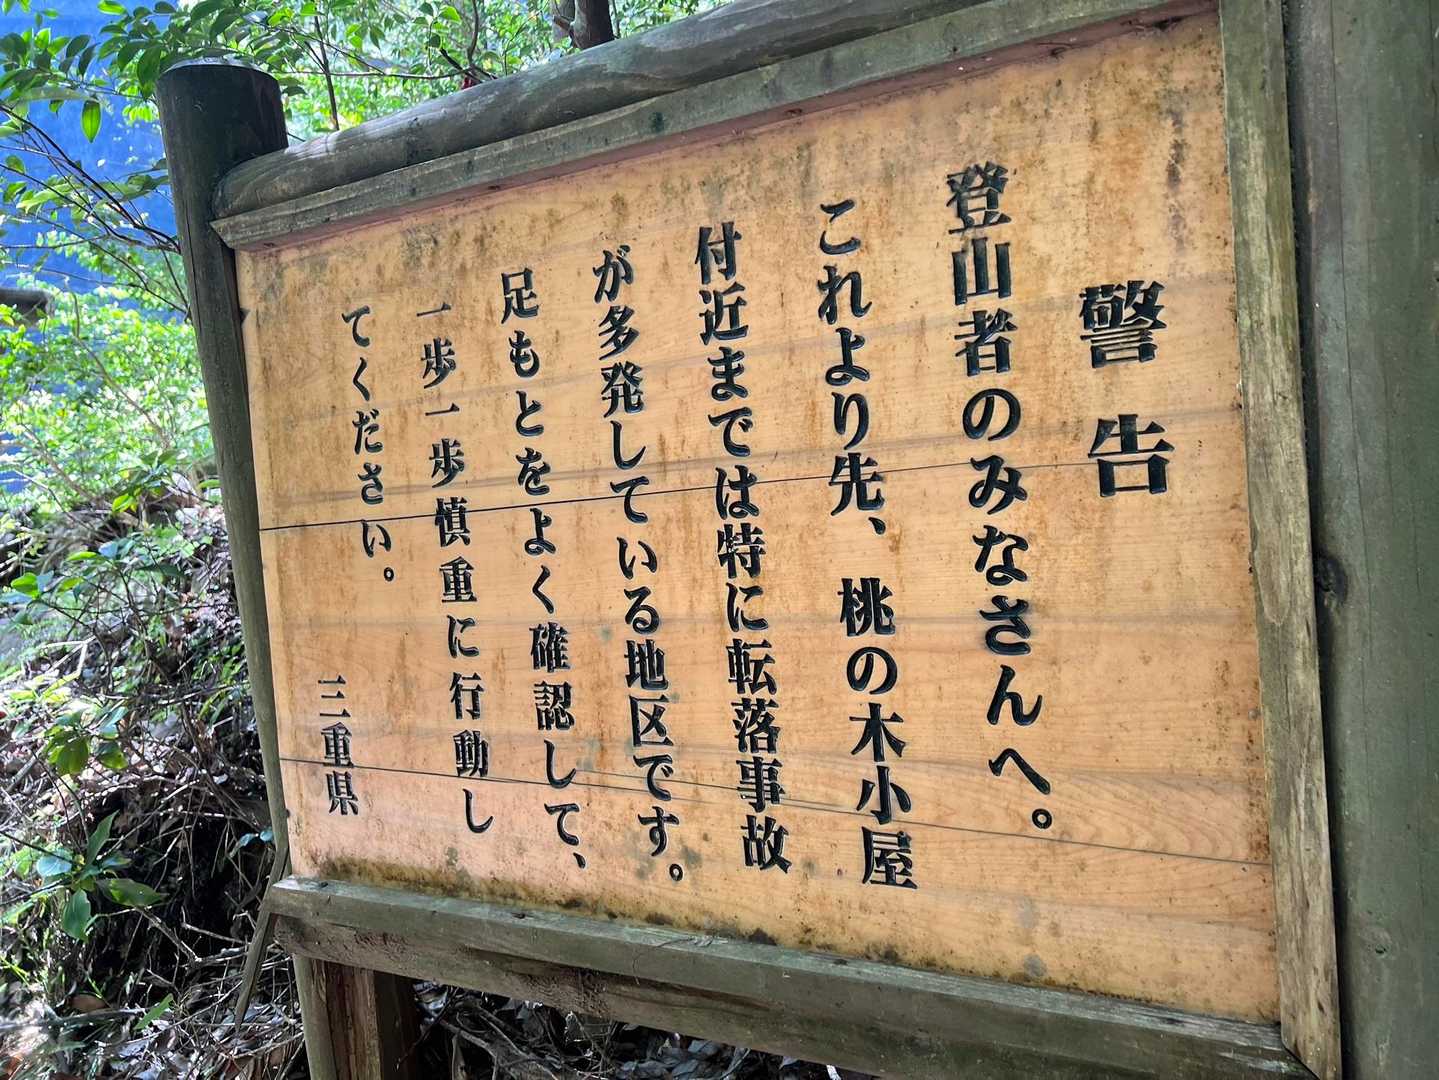 警告
登山者のみなさんへ。
これより先、桃の木小屋
付近までは特に転落事故
が多発している地区です。
足もとをよく確認して、
一歩一歩慎重に行動し
てください。
三重県